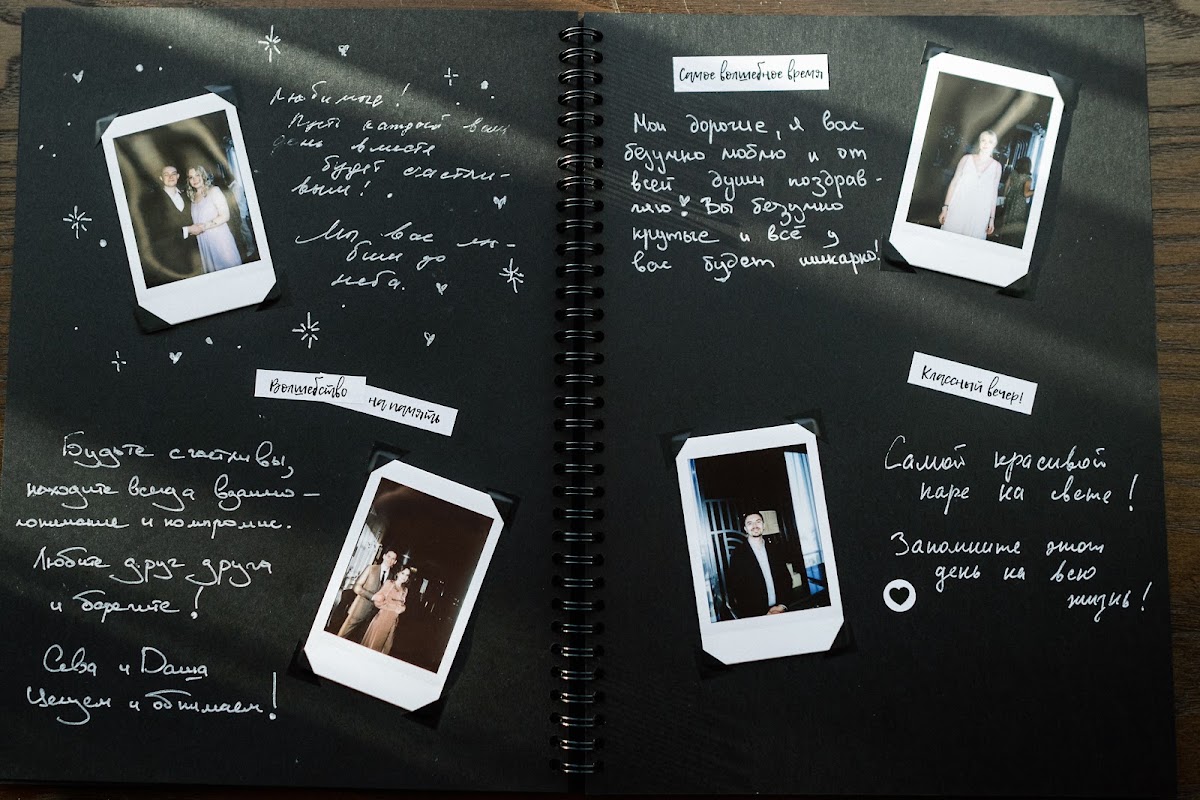 Любимые!
Пусть каждый ваш
день вместе
будет счастли-
вым!
Мы вас лю-
бим до
неба.
Волшебство
на память
Будьте счастливы,
находите всегда взаимо-
понимание и компромис.
Любите друг друга
и берегите!
Сева и Даша
Целуем и обнимаем!
Самое волшебное время
Мои дорогие, я вас
безумно люблю и от
всей души поздрав-
ляю! Вы безумно
крутые и всё у
вас будет шикарно!
Классный вечер!
Самой красивой
паре на свете!
Запомните этот
день на всю
жизнь!